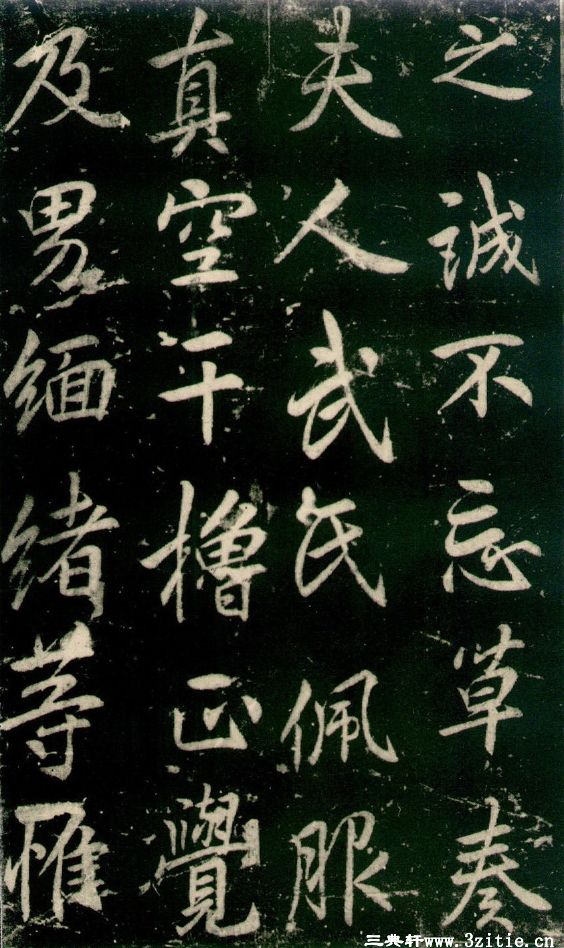 之誠不忘草奏
夫人武氏佩服
真空干櫓正覺
及男緬緒等惟
三典轩www.3zitie.cn